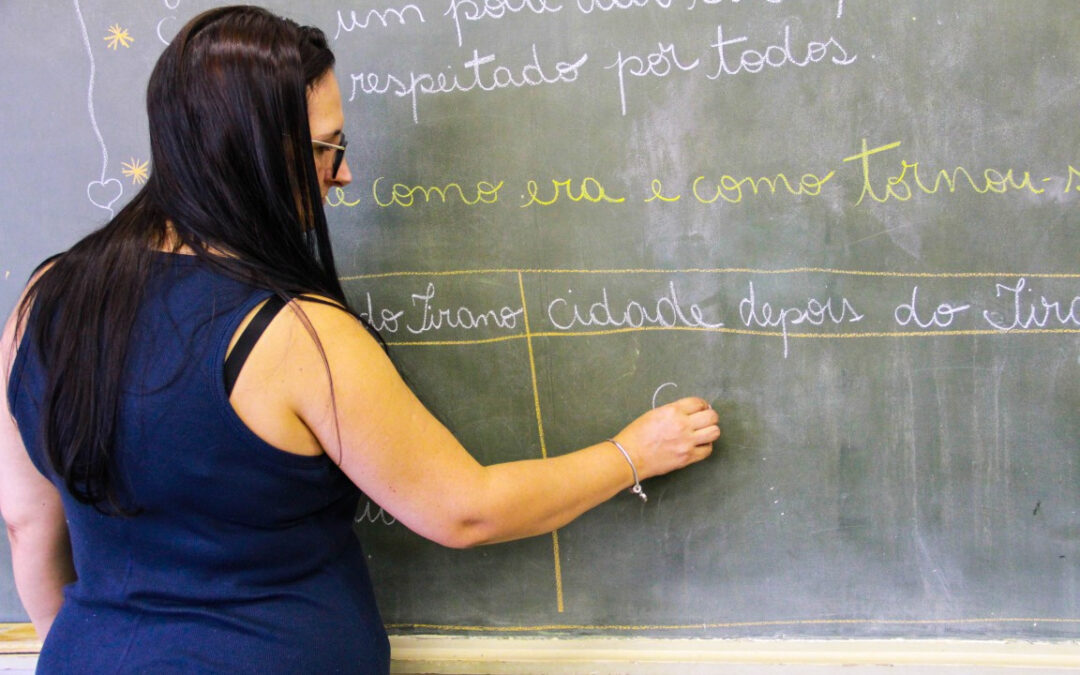 um
respeitado por todos.
como era e como tornou-s
do Tirano cidade depois do Tira
C